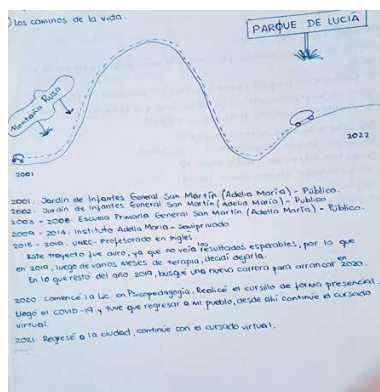 ) Los caminos de la vida.
PARQUE DE LUCÍA
Montaña Rusa
2001
2022
2001: Jardín de Infantes General San Martín (Adelia María) - Público.
2002: Jardín de Infantes General San Martín (Adelia María) - Público
2003 - 2008: Escuela Primaria General San Martín (Adelia María) - Público.
2009 - 2014: Instituto Adelia María - Semiprivado
2015 - 2019: UNRC - Profesorado en Inglés.
Este trayecto fue duro, ya que no veía los resultados esperables, por lo que
en 2019, luego de varios meses de terapia, decidí dejarla.
En lo que restó del año 2019, busqué una nueva carrera para arrancar en 2020.
2020: Comencé la Lic. en Psicopedagogía. Realicé el cursillo de forma presencial.
Llegó el COVID-19 y tuve que regresar a mi pueblo, desde ahí continué el cursado
virtual.
2021: Regresé a la ciudad, continúe con el cursado virtual.